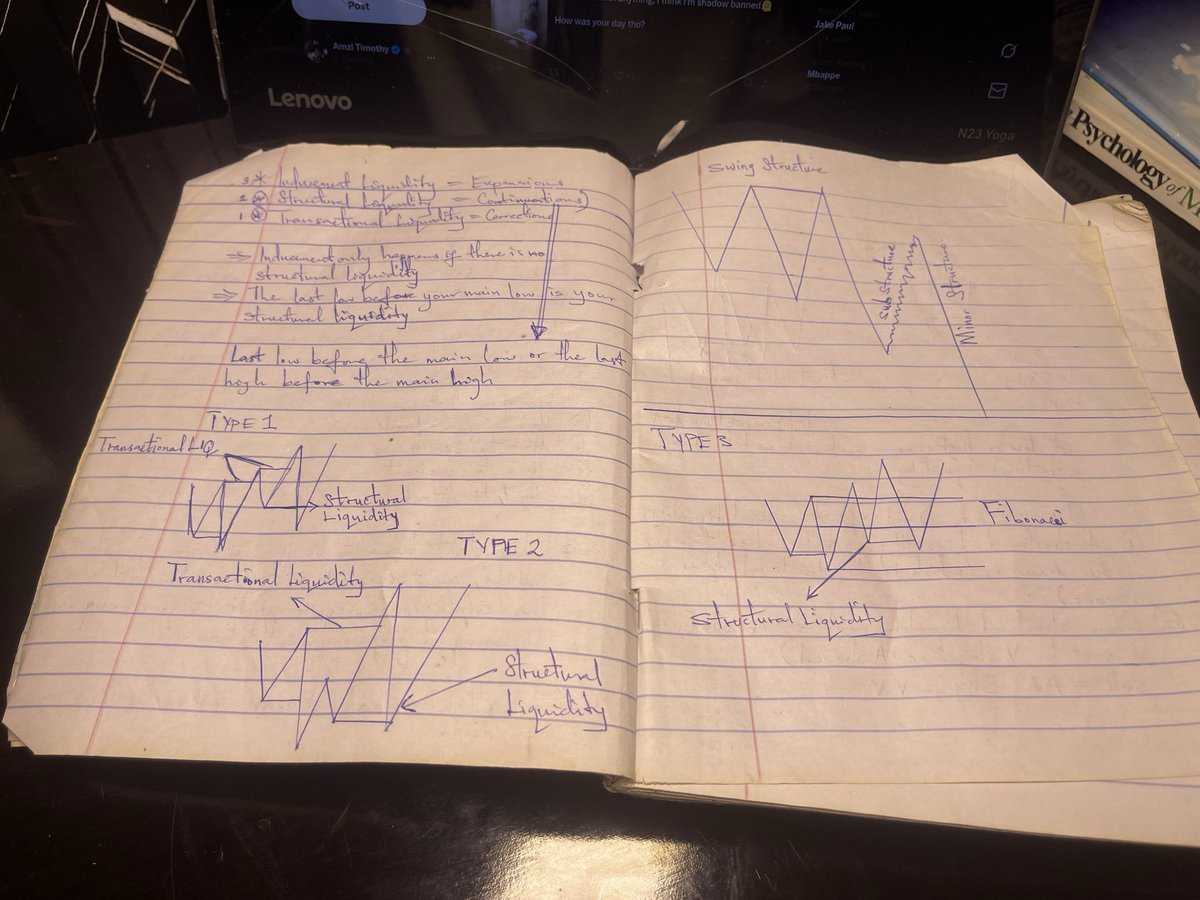 Post
How was your day tho?
Amzi Timothy
Jake Paul
Mbappe
Lenovo
N23 Yoga
Psychology of M
3 * Inducement Liquidity = Expansions
2 * Structural Liquidity = Continuations)
1 * Transactional Liquidity = Corrections
⇒ Inducement only happens if there is no
structural liquidity
⇒ The last low before your main low is your
structural liquidity
Last low before the main low or the last
high before the main high
TYPE 1
Transactional LIQ
Structural
Liquidity
TYPE 2
Transactional Liquidity
Structural
Liquidity
Swing Structure
Sub Structure
Minor Structure
TYPE 3
Fibonacci
Structural Liquidity